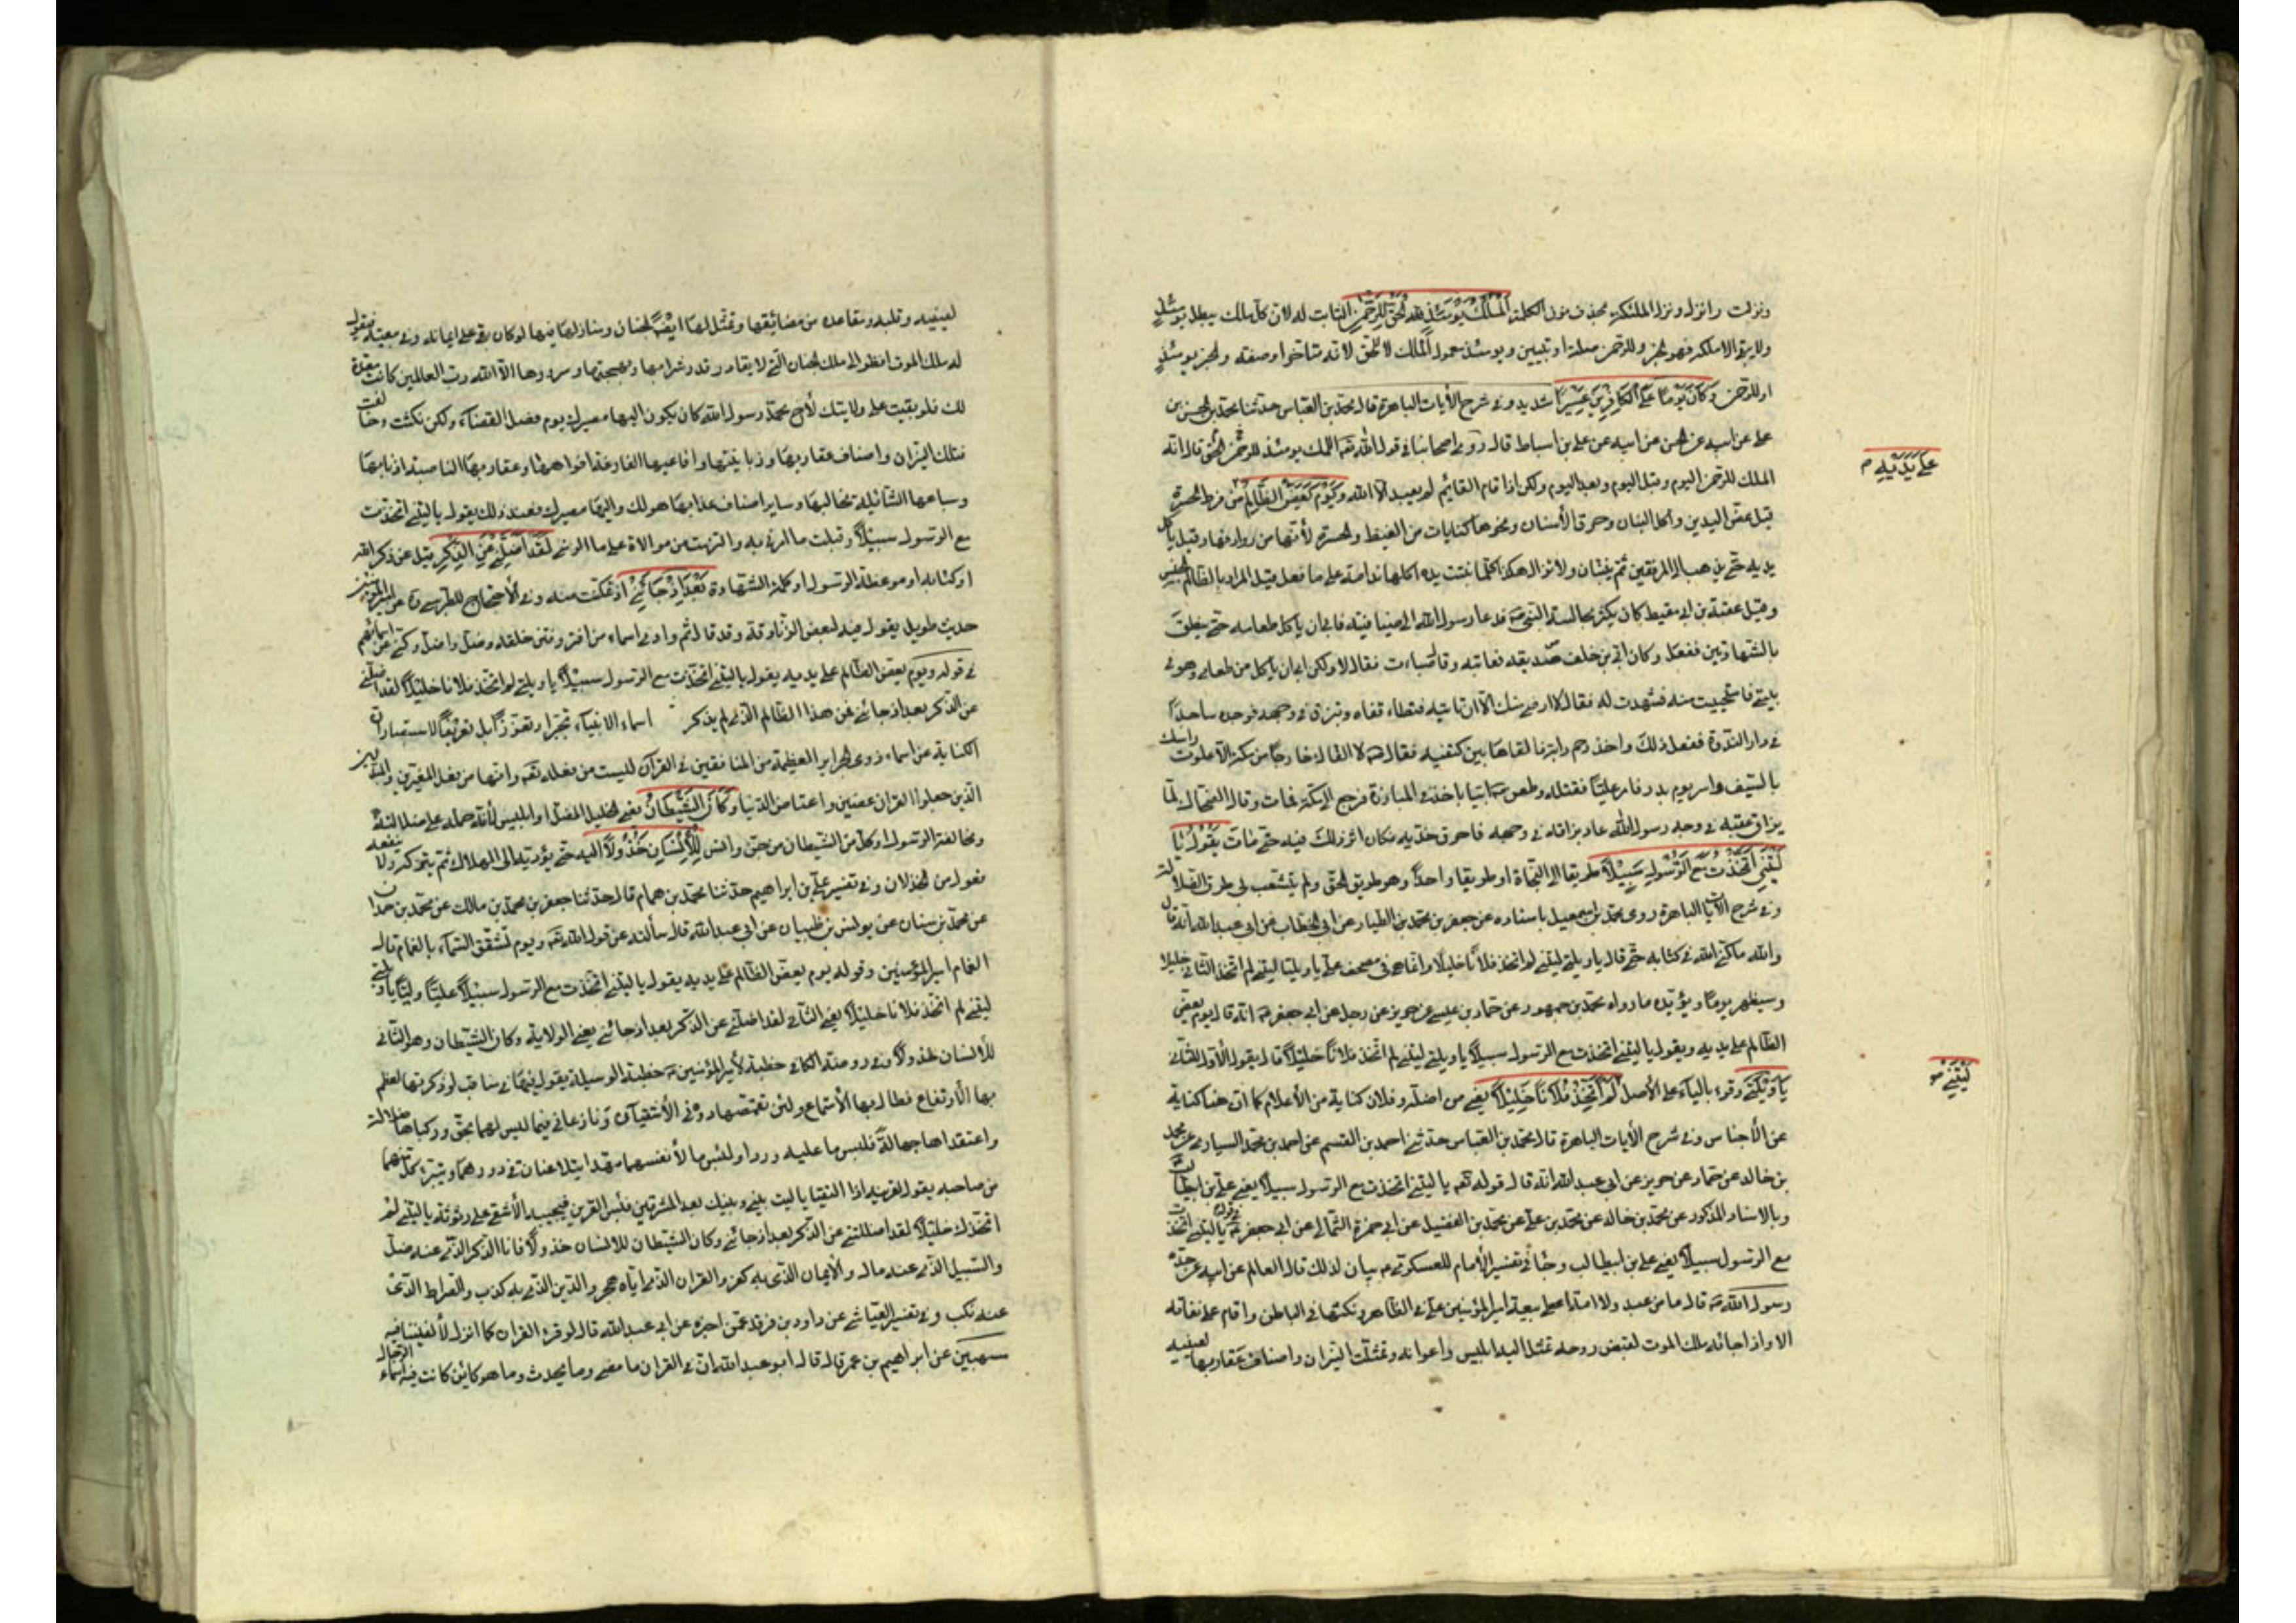 ونزلت وانزل ونزل الملئكة بحذف نون الكلمة اَلْمُلْكُ يَوْمَئِذٍ الْحَقُّ لِلرَّحْمٰنِ الثابت له لان كل ملك يبطل يومئذٍ
ولا يبقى الا ملكه فهو الخبر وللرحمن صلته او تبيين ويومئذ معمول الملك لا الحق لانه متاخر او صفته والخبر يومئذٍ
او للرحمن وَكَانَ يَوْمًا عَلَى الْكَافِرِينَ عَسِيرًا شديد وفي شرح الأيات الباهرة قال محمد بن العباس حدثنا محمد بن الحسن بن
على عن ابيه عن الحسن عن ابيه عن على بن اسباط قال روى اصحابنا في قول الله تعه الملك يومئذ للرحمن الحق قال انه
الملك للرحمن اليوم وقبل اليوم وبعد اليوم ولكن اذا قام القائم لم يعبد الا الله وَيَوْمَ يَعَضُّ الظَّالِمُ من فرط الحسرة
عَلَى يَدَيْهِ م
قيل عض اليدين واكل البنان وحرق الأسنان ونحوها كنايات من الغيظ والحسرة لأنها من روادفها وقيل ياكل
يديه حتى يذهب الى المرفقين ثم ينبتان ولا يزال هكذا كلما نبتت يده اكلها ندامة على ما فعل وقيل المراد بالظالم الجنس
وقيل عقبة بن ابي معيط كان يكثر مجالسة النبي صه فدعا رسول الله الى ضيافته فابى ان ياكل طعامه حتى ينطق
بالشهادتين ففعل وكان ابي بن خلف صديقه فعاتبه وقال صباءت فقال لا ولكن ابى ان ياكل من طعامي وهو في
بيتي فاستحييت منه فشهدت له فقال لا ارضى منك الا ان تاتيه فتطاء قفاه وتبزق في وجهه فوجده ساجدًا
في دار الندوة ففعل ذلك واخذ رحم دابة فالقاها بين كتفيه فقال صه لا القاك خارجًا من مكة الا علوت راسك
بالسيف فاسر يوم بدر فامر عليًا فقتله وطعن صه ابيا باحد في المبارزة فرجع الى مكة فمات وقال الضحاك لما
بزاق عقبة في وجه رسول الله عاد بزاقه في وجهه فاحرق خديه فكان اثر ذلك فيه حتى مات يَقُولُ يَا
لَيْتَنِي اتَّخَذْتُ مَعَ الرَّسُولِ سَبِيلًا طريقا الى النجاة او طريقا واحدًا وهو طريق الحق ولم يتشعب لى طرق الضلالة
وفي شرح الأيات الباهرة روى محمد بن اسمعيل باسناده عن جعفر بن محمد بن الطيار عن ابي الخطاب عن ابي عبد الله انه قال
والله ما كنى الله في كتابه حتى قال يا ويلتى ليتنى لم اتخذ فلانًا خليلًا وانما هى في مصحف على يا ويلتا ليتنى لم اتخذ الثاني خليلا
وسيظهر يومًا ويؤيده ما رواه محمد بن جمهور عن حماد بن عيسى عن حريز عن رجل عن ابي جعفر عه انه قال يوم يعض
الظالم على يديه ويقول يا ليتنى اتخذت مع الرسول سبيلًا يا ويلتى ليتنى لم اتخذ فلانًا خليلًا قال يقول الأول للثاني
يَا وَيْلَتَى وقرء بالياء على الأصل لَمْ أَتَّخِذْ فُلَانًا خَلِيلًا يعنى من اضله وفلان كناية من الأعلام كما ان هنا كناية
لَيْتَنِي
عن الأجناس وفي شرح الأيات الباهرة قال محمد بن العباس حدثنى احمد بن القسم عن احمد بن محمد السياري عن محمد
بن خالد عن حماد عن حريز عن ابي عبد الله انه قال قوله تعه يا ليتنى اتخذت مع الرسول سبيلًا يعنى على بن ابيطالب
وبالاسناد المذكور عن محمد بن خالد عن محمد بن على عن محمد بن الفضيل عن ابي حمزة الثمالى عن ابي جعفر عه في قوله يا ليتنى اتخذت
مع الرسول سبيلًا يعنى على بن ابيطالب وجاء في تفسير الأمام العسكرى عه بيان لذلك قال العالم عن ابيه عن جده
رسول الله صه قال ما من عبد ولا امة اعطى بيعة امير المؤمنين على في الظاهر ونكثها في الباطن واقام على نفاقه
الا واذا جائه ملك الموت لقبض روحه تمثل اليه ابليس واعوانه وتمثلت النيران واصناف عقاربها لعينيه
لعينيه وقلبه ومقاعده من مضائقها وتمثل لها ايضًا الجنان ومنازلها فيها لو كان بقى على ايمانه وفى ببيعته فيقول
له ملك الموت انظر الى ملك الجنان التى لا يقادر قدر شرابها وبهجتها وسرورها الا الله رب العالمين كانت معدة
لك فلو بقيت على ولايتك لأخى محمد رسول الله كان يكون اليها مصيرك يوم فصل القضاء ولكن نكثت وخالفت
فتلك النيران واصناف عقاربها وزبانيتها وافاعيها الفاغرة افواهها وعقاربها الناصبة اذنابها
وسباعها الشائلة مخالبها وساير اصناف عذابها هو لك واليها مصيرك فعند ذلك يقول يا ليتنى اتخذت
مع الرسول سبيلًا وقبلت ما امرنى به والتزمت من موالاة على ما الزمنى لَقَدْ أَضَلَّنِي عَنِ الذِّكْرِ قيل عن ذكر الله
او كتابه او موعظة الرسول او كلمة الشهادة بَعْدَ إِذْ جَاءَنِي اذ تمكنت منه وفي الأحتجاج للطبرسى ره عن امير المؤمنين
حديث طويل يقول فيه لبعض الزنادقة وقد قال ثم وارى اسماء من اغتر وفتن خلقه وضل واضل وكنى عن اسمائهم
في قوله ويوم يعض الظالم على يديه يقول يا ليتنى اتخذت مع الرسول سبيلًا يا ويلتى لم اتخذ فلانا خليلًا لقد اضلنى
عن الذكر بعد اذ جائنى فمن هذا الظالم الذى لم يذكر اسماء الانبياء تجبرا وتعززًا بل تعريفًا لاستبصار ان
الكناية عن اسماء ذوى الجرائر العظيمة من المنافقين في القرآن ليست من فعله تعه وانها من فعل المغيرين والمبدلين
الذين جعلوا القران عضين واعتاضوا الدنيا وَكَانَ الشَّيْطَانُ يعنى الخليل المضل او ابليس لأنه حمله على مخالته
ومخالفة الرسول او كل من الشيطان من جن وانس لِلْإِنْسَانِ خَذُولًا اليه حتى يؤديه الى الهلاك ثم يتركه ولا ينفعه
فعول من الخذلان وفي تفسير على بن ابراهيم حدثنا محمد بن همام قال حدثنا جعفر بن محمد بن مالك عن محمد بن حمدان
عن محمد بن سنان عن يونس بن ظبيان عن ابي عبد الله قال سألته عن قول الله تعه ويوم تشقق السماء بالغمام قال
الغمام امير المؤمنين وقوله يوم يعض الظالم على يديه يقول يا ليتنى اتخذت مع الرسول سبيلًا عليًا وليًا يا ويلتى
ليتنى لم اتخذ فلانا خليلًا يعنى الثانى لقد اضلنى عن الذكر بعد اذ جائنى يعنى الولاية وكان الشيطان وهو الثانى
للأنسان خذولًا وفي روضة الكافى خطبة لأمير المؤمنين عه خطبة الوسيلة يقول فيها في مناقب لو ذكرتها لعظم
بها الأرتفاع فطال بها الأستماع ولئن تقمصها دونى الأشقيان ونازعانى فيما ليس لهما بحق وركباها ضلالة
واعتقداها جهالة فلبئس ما عليه وردا ولبئس ما لأنفسهما مهدا يتلاعنان في دورهما ويتبرء كل منهما
من صاحبه يقول لقرينه اذا التقيا يا ليت بينى وبينك بعد المشرقين فبئس القرين فيجيبه الأشقى على رثوثة يا ليتنى لم
اتخذك خليلًا لقد اضللتنى عن الذكر بعد اذ جائنى وكان الشيطان للانسان خذولًا فانا الذكر الذى عنه ضل
والسبيل الذى عنه مال والأيمان الذى به كفر والقران الذى اياه هجر والدين الذى به كذب والصراط الذى
عنه نكب وفي تفسير العياشى عن داود بن فرقد عمن اخبره عن ابي عبد الله قال لو قرء القران كما انزل لألفيتنا فيه
مسمين عن ابراهيم بن عمر قال قال ابو عبد الله ان في القران ما مضى وما يحدث وما هو كائن كانت فيه اسماء الرجال